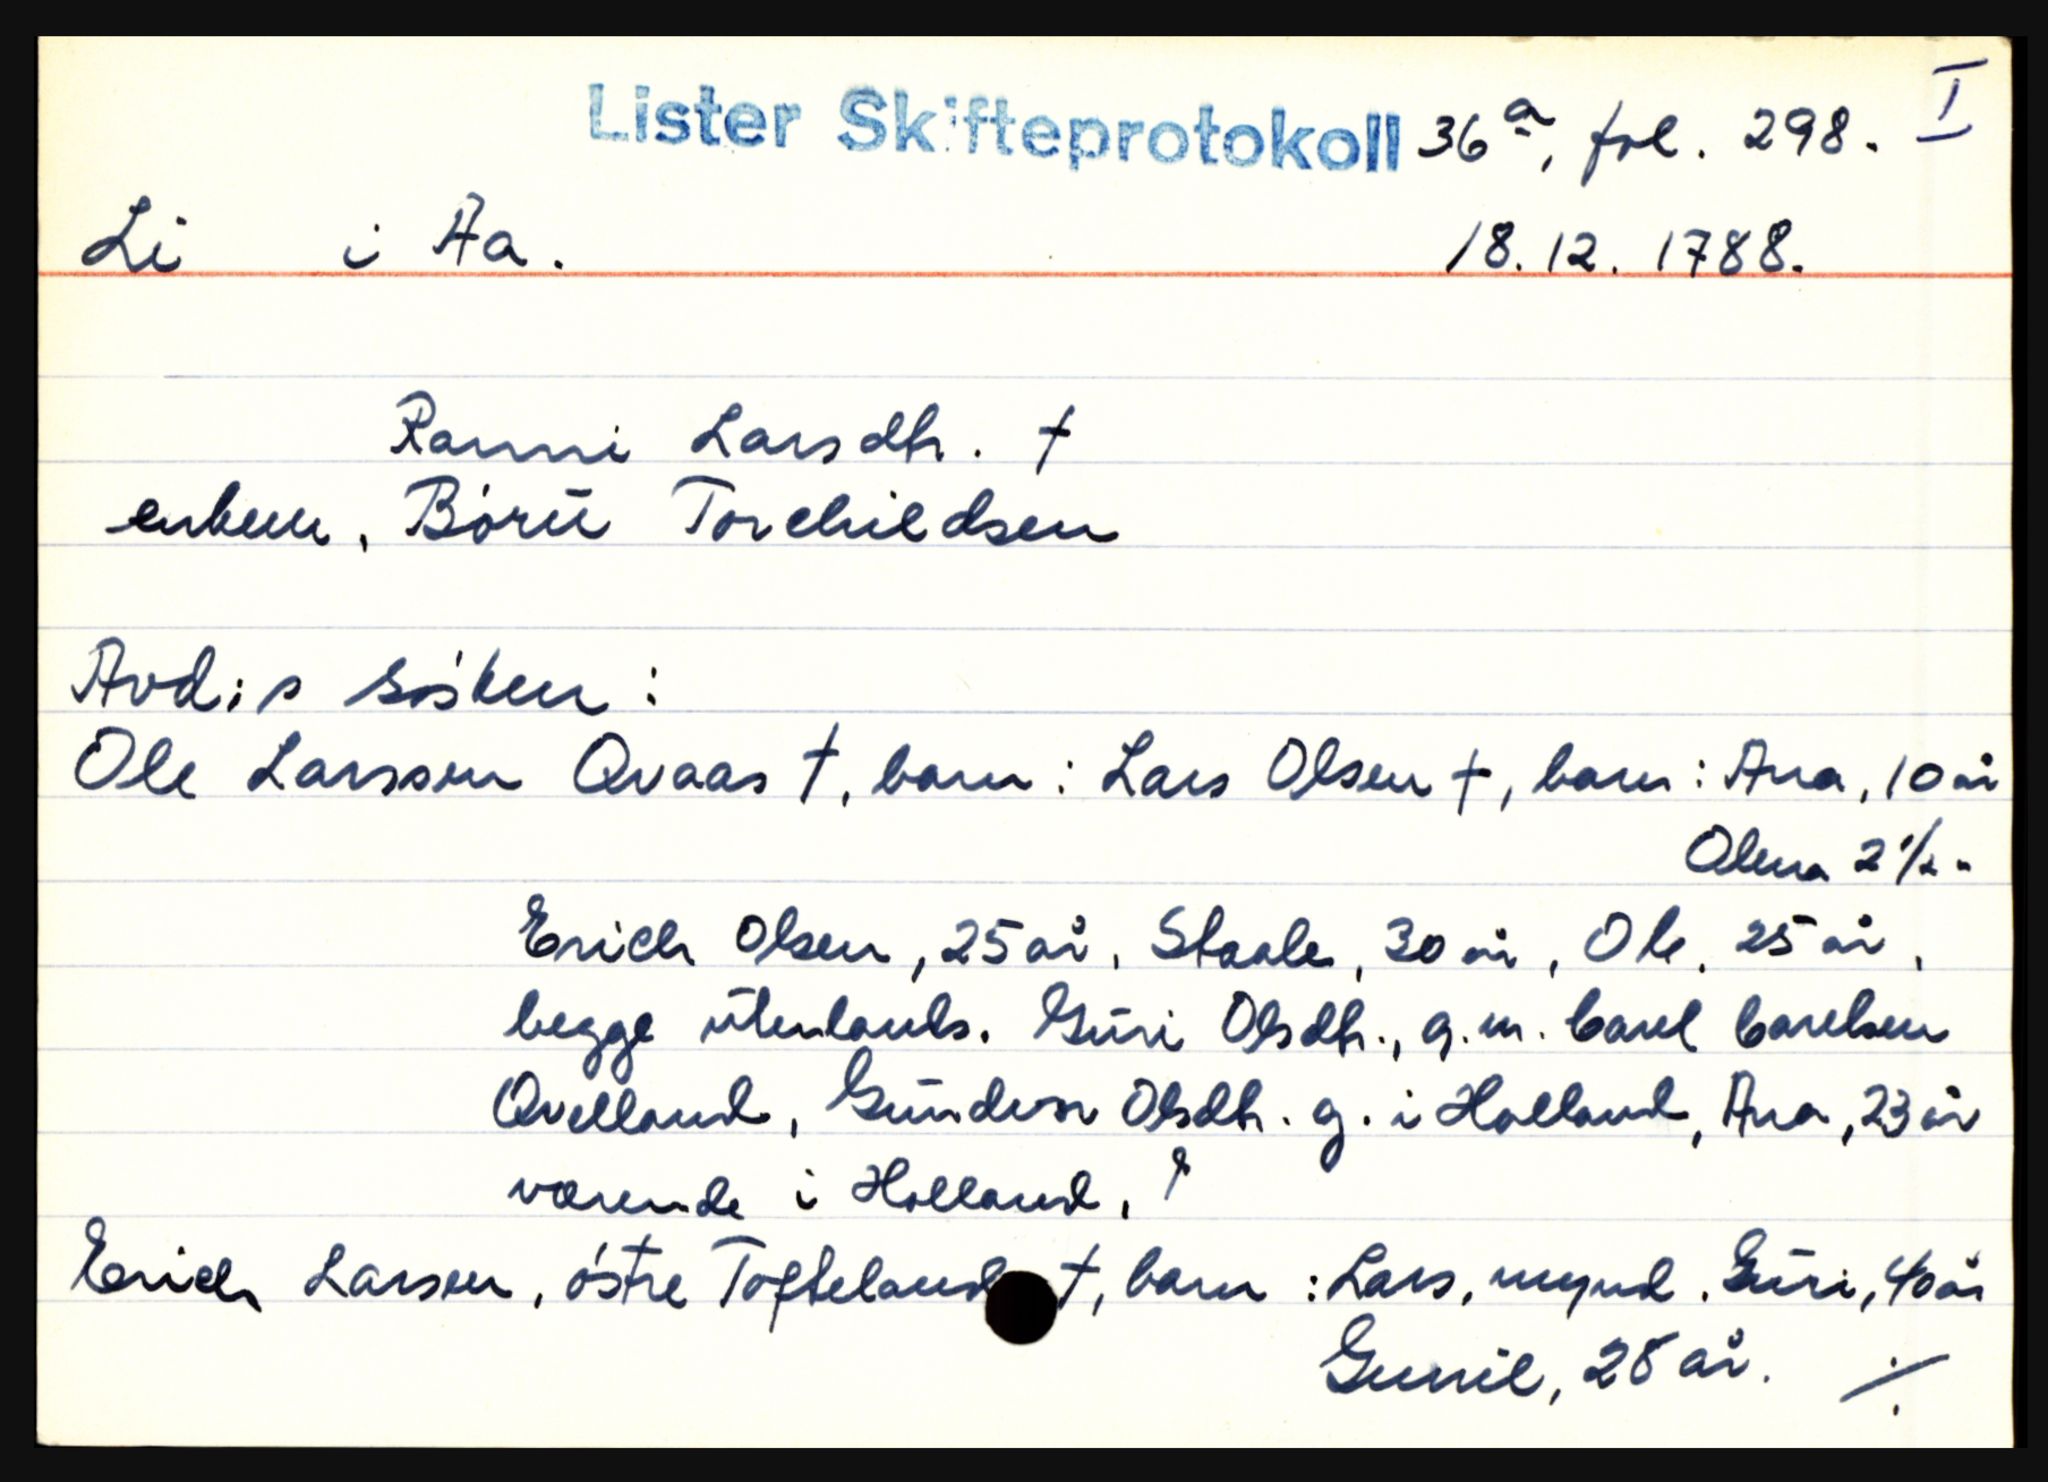 Lister Skifteprotokoll 36a, fol. 298. I
Li i Aa. 18.12.1788.
Ranni Larsdtr. †
enkem. Börü Torchildsen
Avd:s sösken:
Ole Larssen Qvaas †, barn: Lars Olsen †, barn: Ana, 10 år
Olena 2 1/2 "
Erich Olsen, 25 år, Staale, 30 år, Ole, 25 år,
begge ütenlands. Güri Olsdtr., g.m. Carel Carelsen
Qvelland, Günder Olsdtr. g. i Holland, Ana, 23 år
værende i Holland,
Erich Larsen, östre Tofteland †, barn: Lars, mynd. Güri, 40 år
Gunil, 28 år. ./.